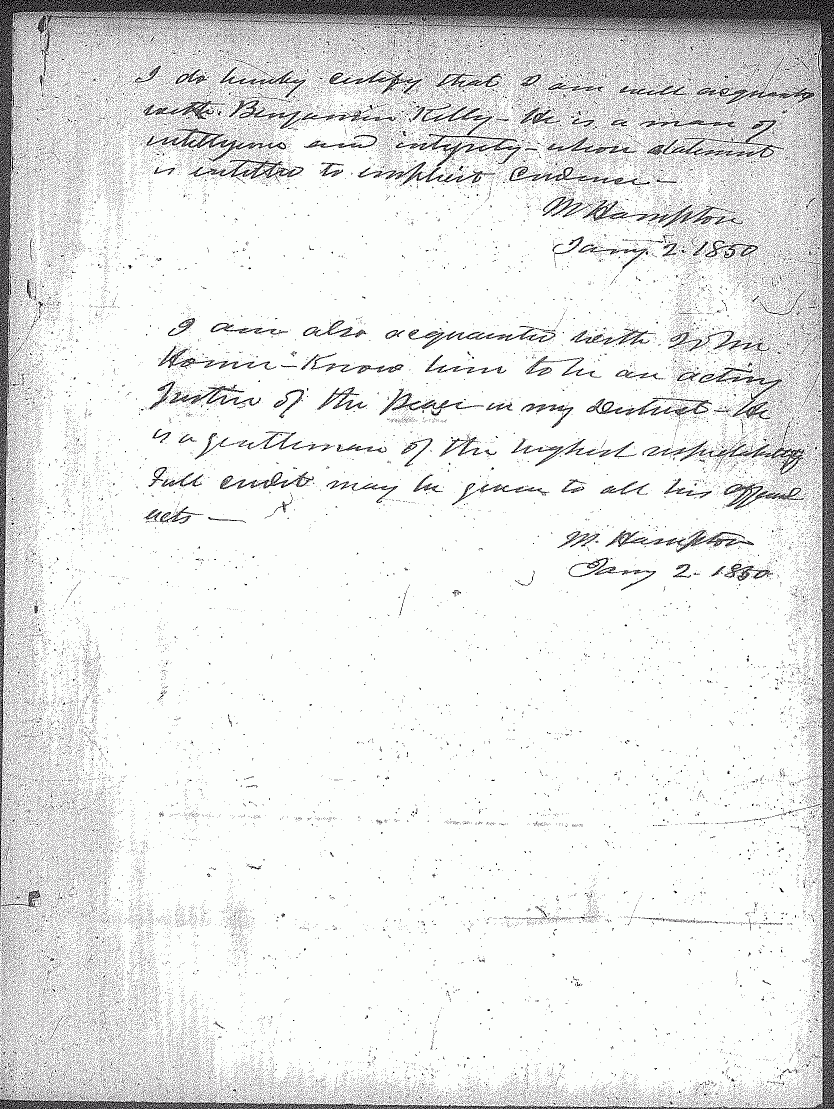 I do hereby certify that I am well acquainted
with Benjamin Kelly - He is a man of
intelligence and integrity - whose statement
is entitled to implicit credence -
M Hampton
Jany. 2. 1850
I am also acquainted with John
Know him to be an acting
Justice of the Peace in my District - He
is a gentleman of the highest respectability
Full credit may be given to all his official
acts -
M. Hampton
Jany 2. 1850